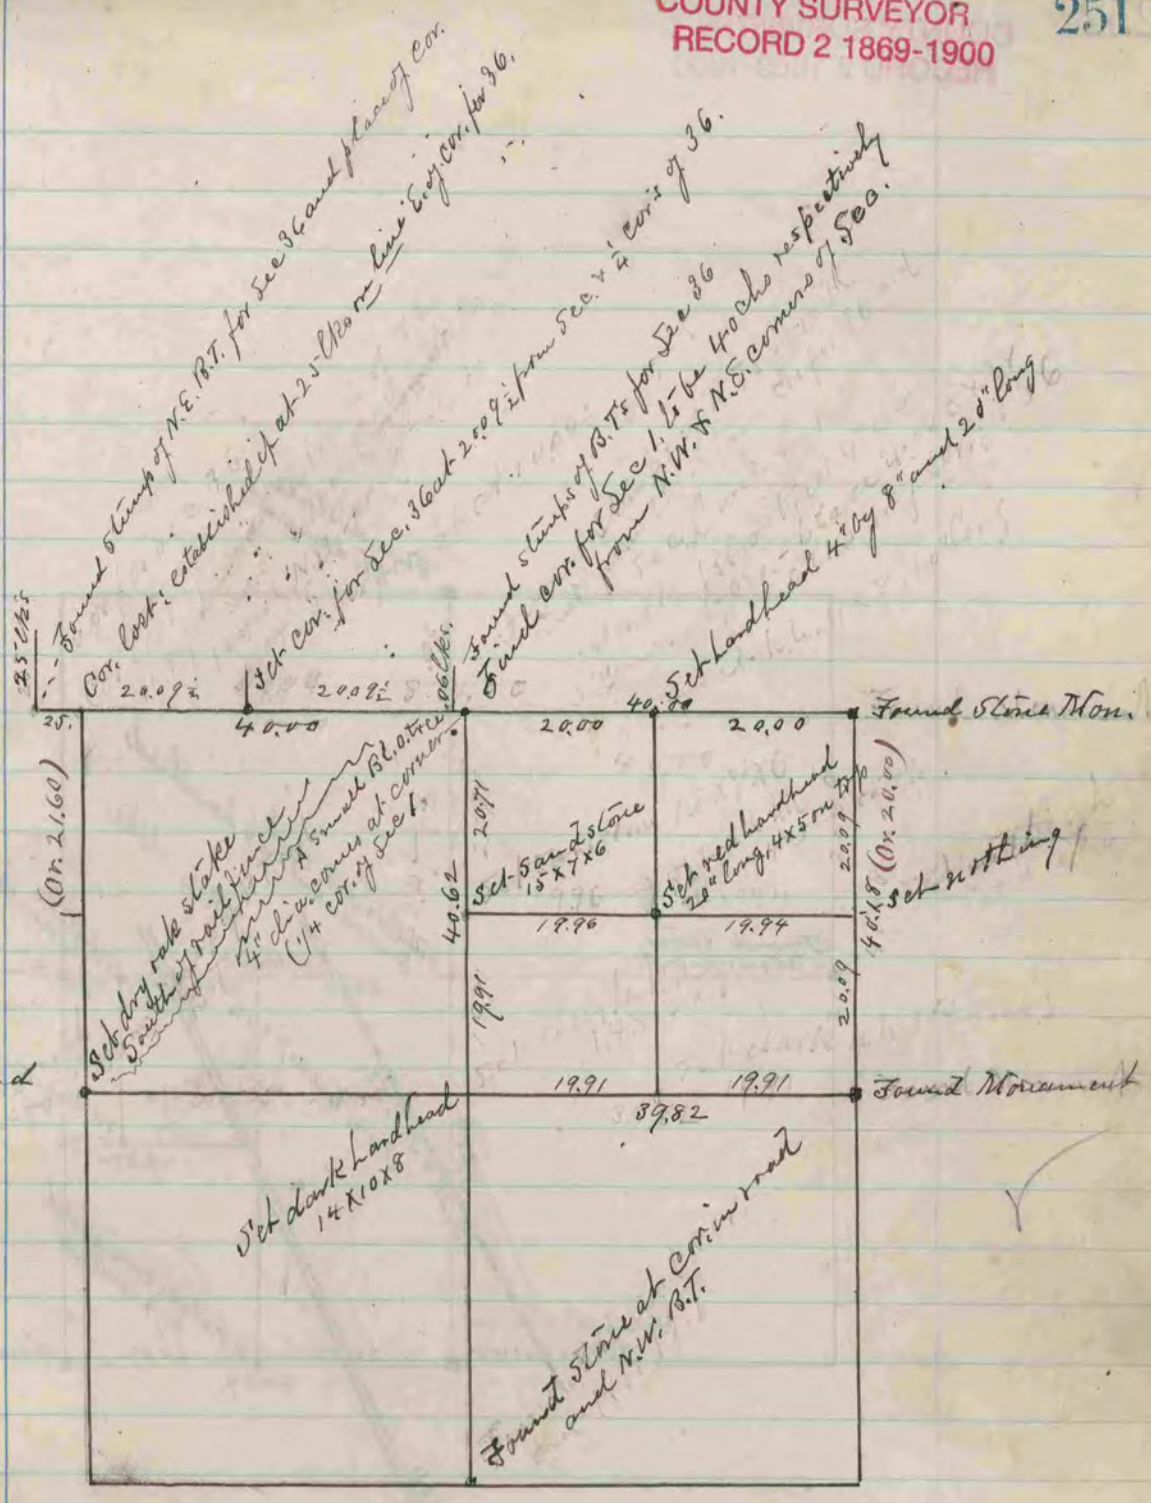 COUNTY SURVEYOR
RECORD 2 1869-1900
251
Found Stump of N.E. B.T. for Sec 36 and place of Cor.
Cor. lost: established it at 25 lks on line E. of cor. for 36.
Set cor. for Sec. 36 at 20.09½ from Sec. & ¼ cor's of 36.
Found stumps of B.T's for Sec 36
Find cor. for Sec 1. to be 40 chs respectively
from N.W. & N.E. corners of Sec.
Set hardhead 4" by 8" and 20" long
25 lks
25.
20.09½
20.09½
.06 lks.
40.00
20.00
40.00
20.00
Found Stone Mon.
(Or. 21.60)
Set dry oak stake
South of rail fence
A small Bl. o. tree
4" dia. comes at corner
(1/4 cor. of Sec 1.
20.71
40.62
19.91
Set Sandstone
15 x 7 x 6
Set red hardhead
20" long, 4x5 on top
20.09
40.18 (Or. 20.00)
20.09
Set nothing
19.96
19.94
d
19.91
19.91
39.82
Found Monument
Set dark hardhead
14 x 10 x 8
Found Stone at Cor. in road
and N.W. B.T.